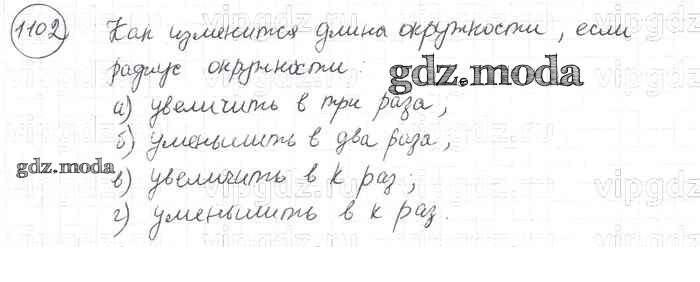 1102 Как изменится длина окружности, если
радиус окружности:
gdz.moda
а) увеличить в три раза;
б) уменьшить в два раза;
gdz.moda
в) увеличить в к раз;
г) уменьшить в к раз.